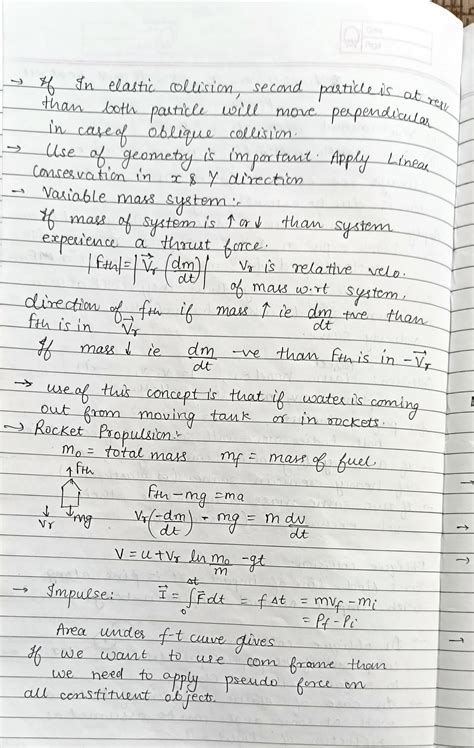 → If In elastic collision, second particle is at rest
than both particle will move perpendicular
in case of oblique collision.
→ Use of geometry is important. Apply Linear
Conservation in x & Y direction
→ Variable mass system :-
If mass of system is ↑ or ↓ than system
experience a thrust force.
|Fth| = |V⃗r (dm/dt)| Vr is relative velo.
of mass w.r.t system.
direction of fth if mass ↑ ie dm/dt +ve than
fth is in V⃗r
If mass ↓ ie dm/dt -ve than fth is in -V⃗r
→ use of this concept is that if water is coming
out from moving tank or in rockets.
→ Rocket Propulsion :-
m₀ = total mass mf = mass of fuel.
↑Fth
Fth - mg = ma
↓Vr ↓mg Vr(-dm/dt) - mg = m dv/dt
V = u + Vr ln m₀/m - gt
→ Impulse: I⃗ = ∫₀^Δt F⃗dt = fΔt = mvf - mi
= Pf - Pi
Area under f-t curve gives
If we want to use com frame than
we need to apply pseudo force on
all constituent objects.